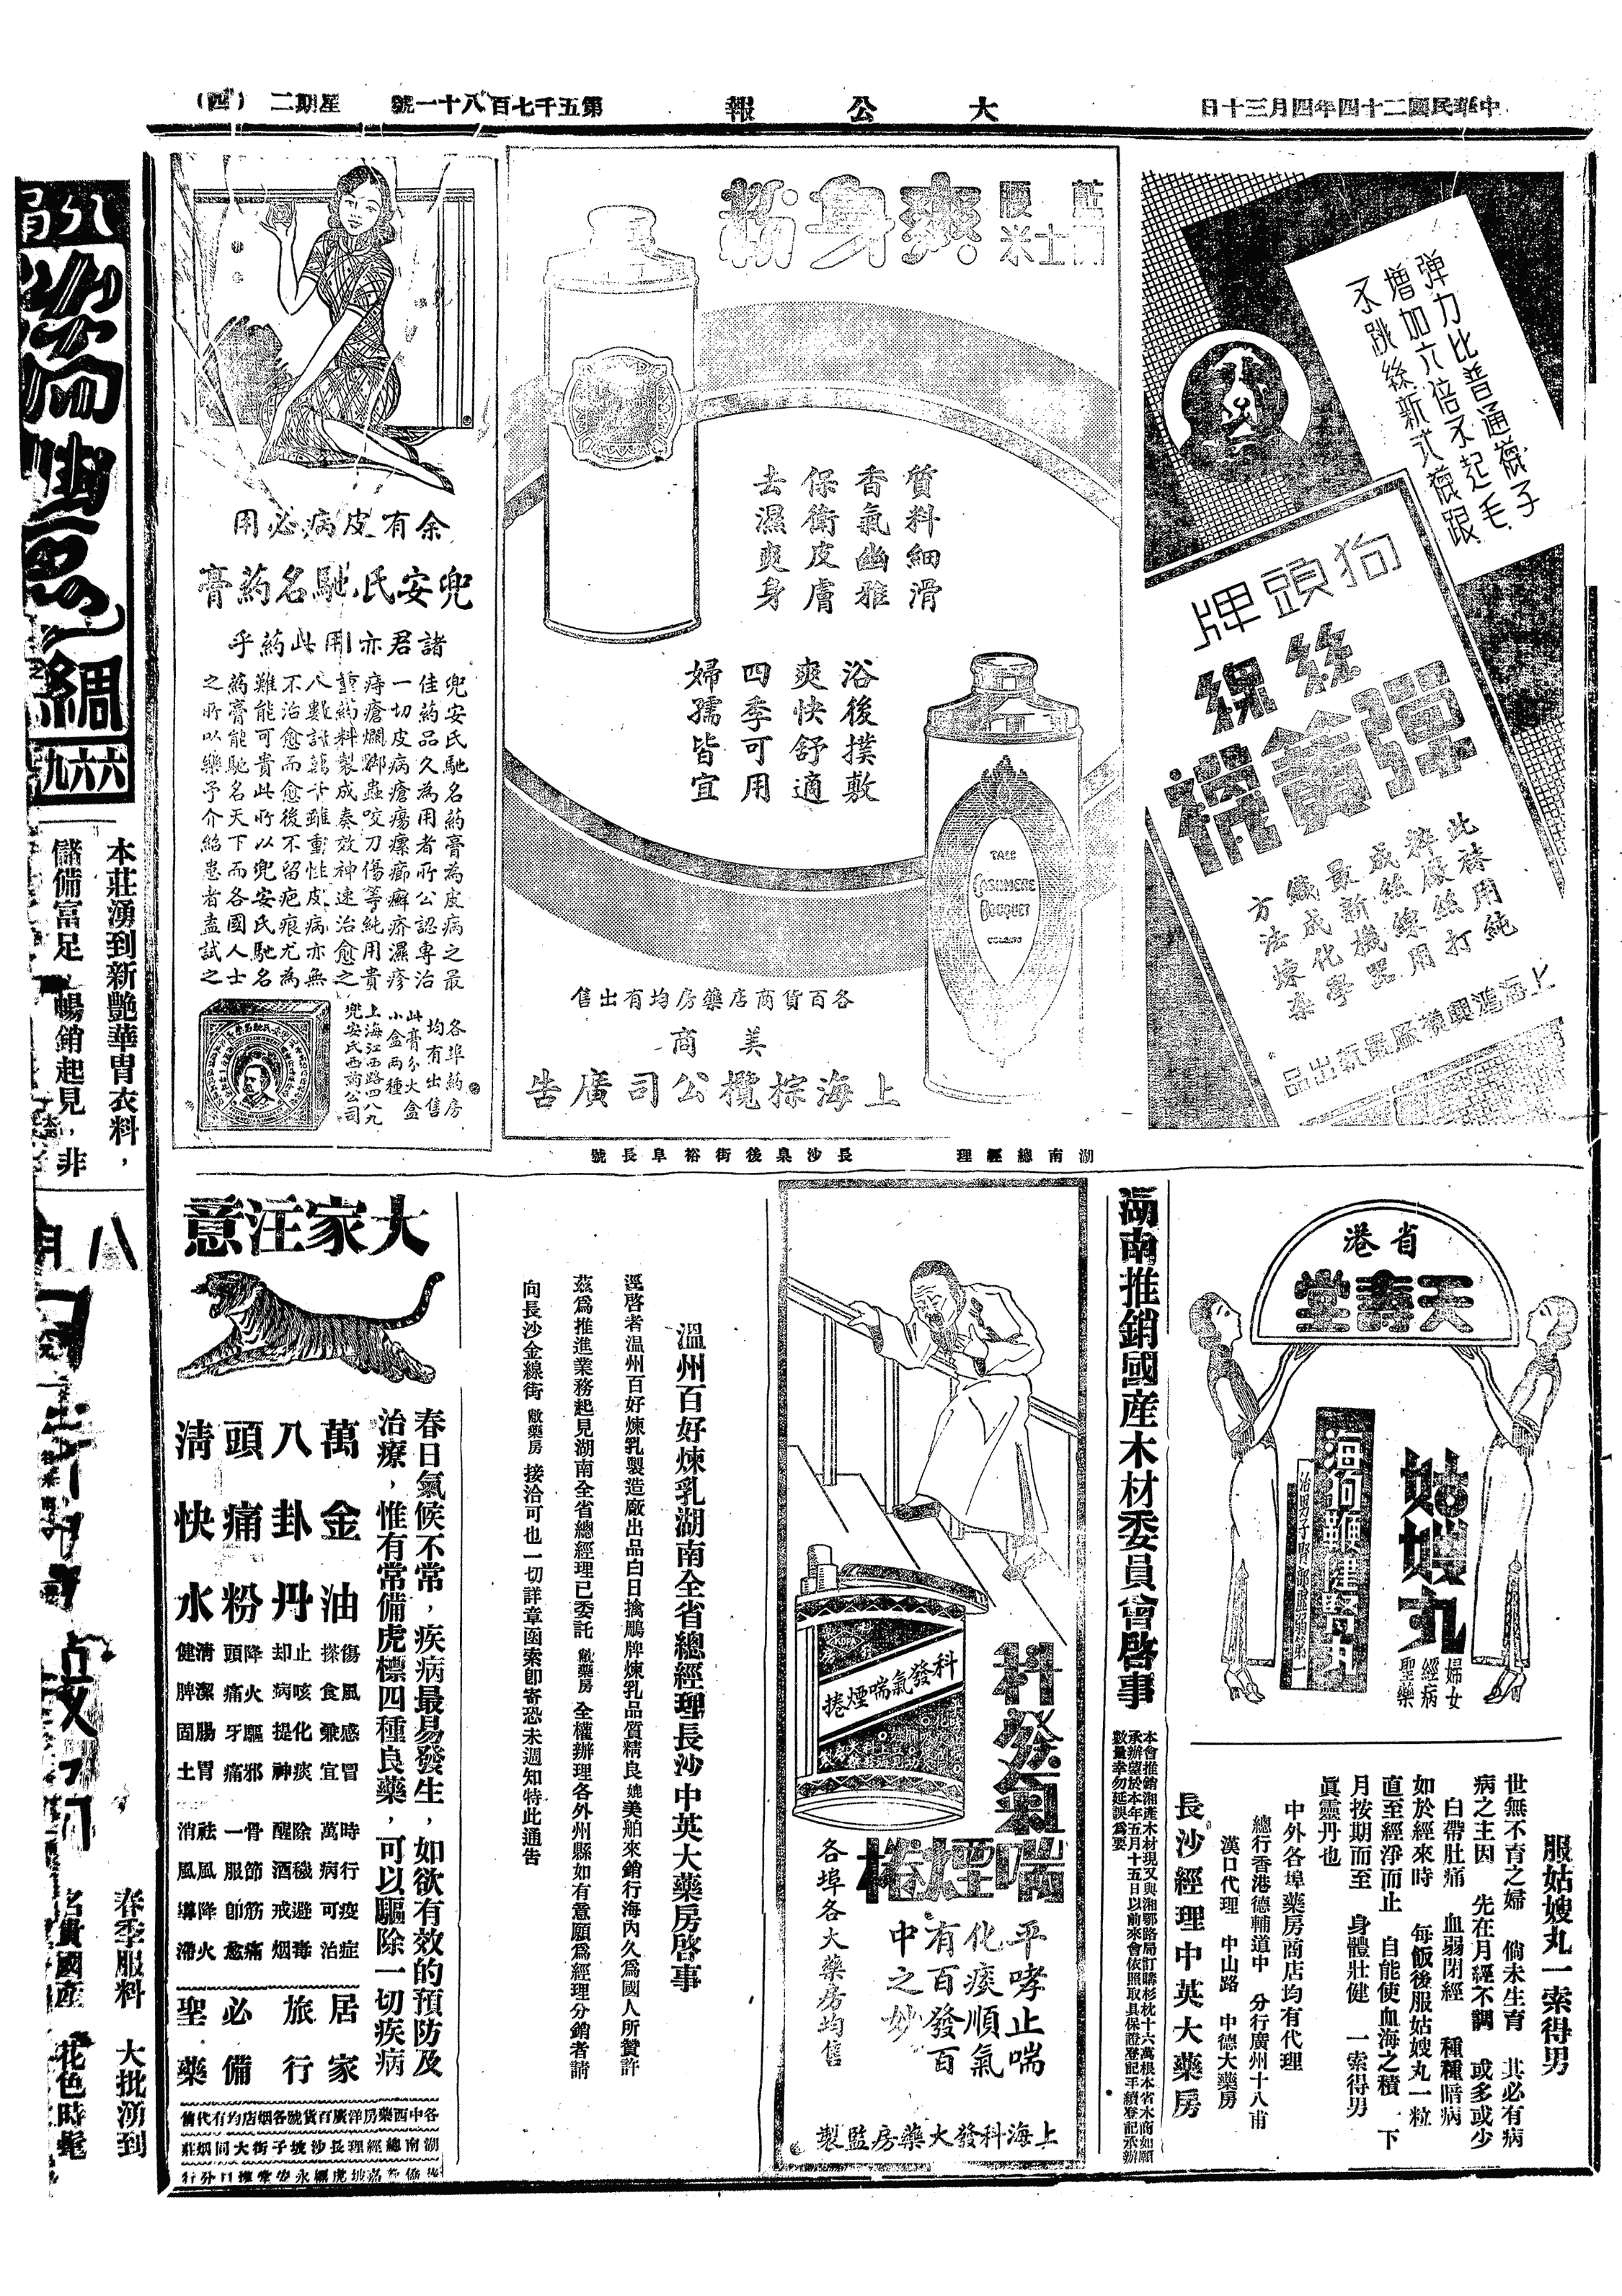 中華民國二十四年四月三十日
大公報
第五千七百八十一號
星期二
（四）
彈力比普通襪子
增加六倍不起毛
不跳絲新式襪跟
狗頭牌
絲線
彈簧襪
此襪用純
粹廠絲打
成絲線用
最新機器
織成化學
方法煉染
上海鴻興襪廠最新出品
爽身粉
質料細滑
香氣幽雅
保衛皮膚
去濕爽身
浴後撲敷
爽快舒適
四季可用
婦孺皆宜
TALC
CASHMERE
BOUQUET
COLGATE
各百貨商店藥房均有出售
美商
上海棕欖公司廣告
余有皮病必用
兜安氏馳名葯膏
諸君亦用此葯乎
兜安氏馳名葯膏為皮病之最
佳葯品久為用者所公認專治
一切皮病瘡瘍瘰癤癬疥濕疹
痔瘡爛脚蟲咬刀傷等純用貴
重葯料製成奏效神速治愈之
人數計萬千雖重性皮病亦無
不治愈而愈後不留疤痕尤為
難能可貴此所以兜安氏馳名
葯膏能馳名天下而各國人士
之所以樂予介紹患者盍試之
各埠葯房
均有出售
此膏分大盒
小盒兩種
上海江西路四八九
兜安氏西葯公司
湖南總經理
長沙臬後街裕阜長號
省港
天壽堂
姑嫂丸
婦女
經病
聖藥
海狗鞭健腎丸
服姑嫂丸一索得男
世無不育之婦　倘未生育　其必有病
病之主因　先在月經不調　或多或少
白帶肚痛　血弱閉經　種種暗病
如於經來時　每飯後服姑嫂丸一粒
直至經淨而止　自能使血海之積　下
月按期而至　身體壯健　一索得男
眞靈丹也
中外各埠藥房商店均有代理
總行香港德輔道中　分行廣州十八甫
漢口代理　中山路　中德大藥房
長沙經理中英大藥房
湖南推銷國産木材委員會啓事
本會推銷湘產木材現又與湘鄂路局訂購杉枕十六萬根本省木商如願
承辦望於本年五月十五日以前來會依照取具保證登記手續登記承辦
數量幸勿延誤爲要
科發氣喘煙捲
科發氣
喘煙捲
平哮止喘
化痰順氣
有百發百
中之妙
各埠各大藥房均售
上海科發大藥房監製
溫州百好煉乳湖南全省總經理長沙中英大藥房啓事
逕啓者溫州百好煉乳製造廠出品白日擒鵰牌煉乳品質精良媲美舶來銷行海內久爲國人所贊許
茲爲推進業務起見湖南全省總經理已委託敝藥房全權辦理各外州縣如有意願爲經理分銷者請
向長沙金線街敝藥房接洽可也一切詳章函索卽寄恐未週知特此通告
大家注意
春日氣候不常，疾病最易發生，如欲有效的預防及
治療，惟有常備虎標四種良藥，可以驅除一切疾病
萬金油
八卦丹
頭痛粉
清快水
傷風感冒
搽食兼宜
止咳化痰
却病提神
降火驅邪
頭痛牙痛
清潔腸胃
健脾固土
時行疫症
萬病可治
除穢避毒
醒酒戒烟
骨節筋痛
一服卽愈
祛風降火
消風導滯
居家
旅行
必備
聖藥
各中西藥房洋廣百貨號各烟店均有代售
湖南總經理長沙坡子街大同烟莊
本莊湧到新艷華胄衣料，
儲備富足　暢銷起見，非
綢
六六九
春季服料　大批湧到
名貴國産　花色時髦